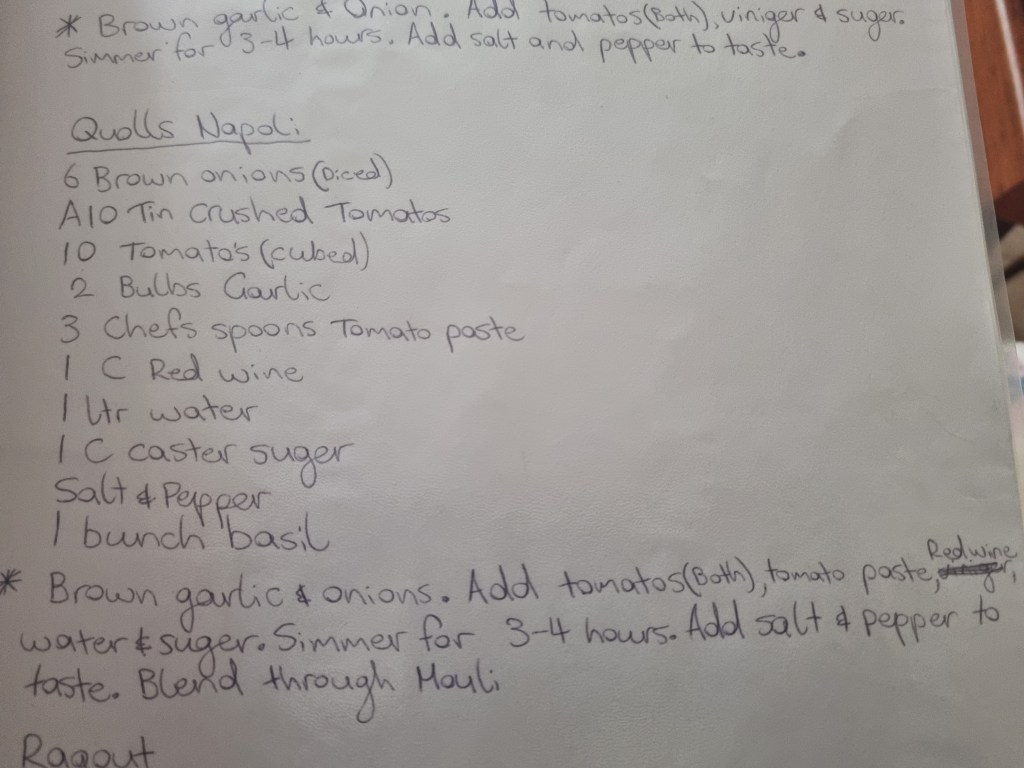 * Brown garlic & Onion. Add tomatos(Both), viniger & suger.
Simmer for 3-4 hours. Add salt and pepper to taste.
Quolls Napoli
6 Brown onions (Diced)
A10 Tin Crushed Tomatos
10 Tomato's (cubed)
2 Bulbs Garlic
3 Chefs spoons Tomato paste
1 C Red wine
1 Ltr water
1 C caster suger
Salt & Pepper
1 bunch basil
Red wine
* Brown garlic & onions. Add tomatos(Both), tomato paste, ,
water & suger. Simmer for 3-4 hours. Add salt & pepper to
taste. Blend through Mouli
Ragout